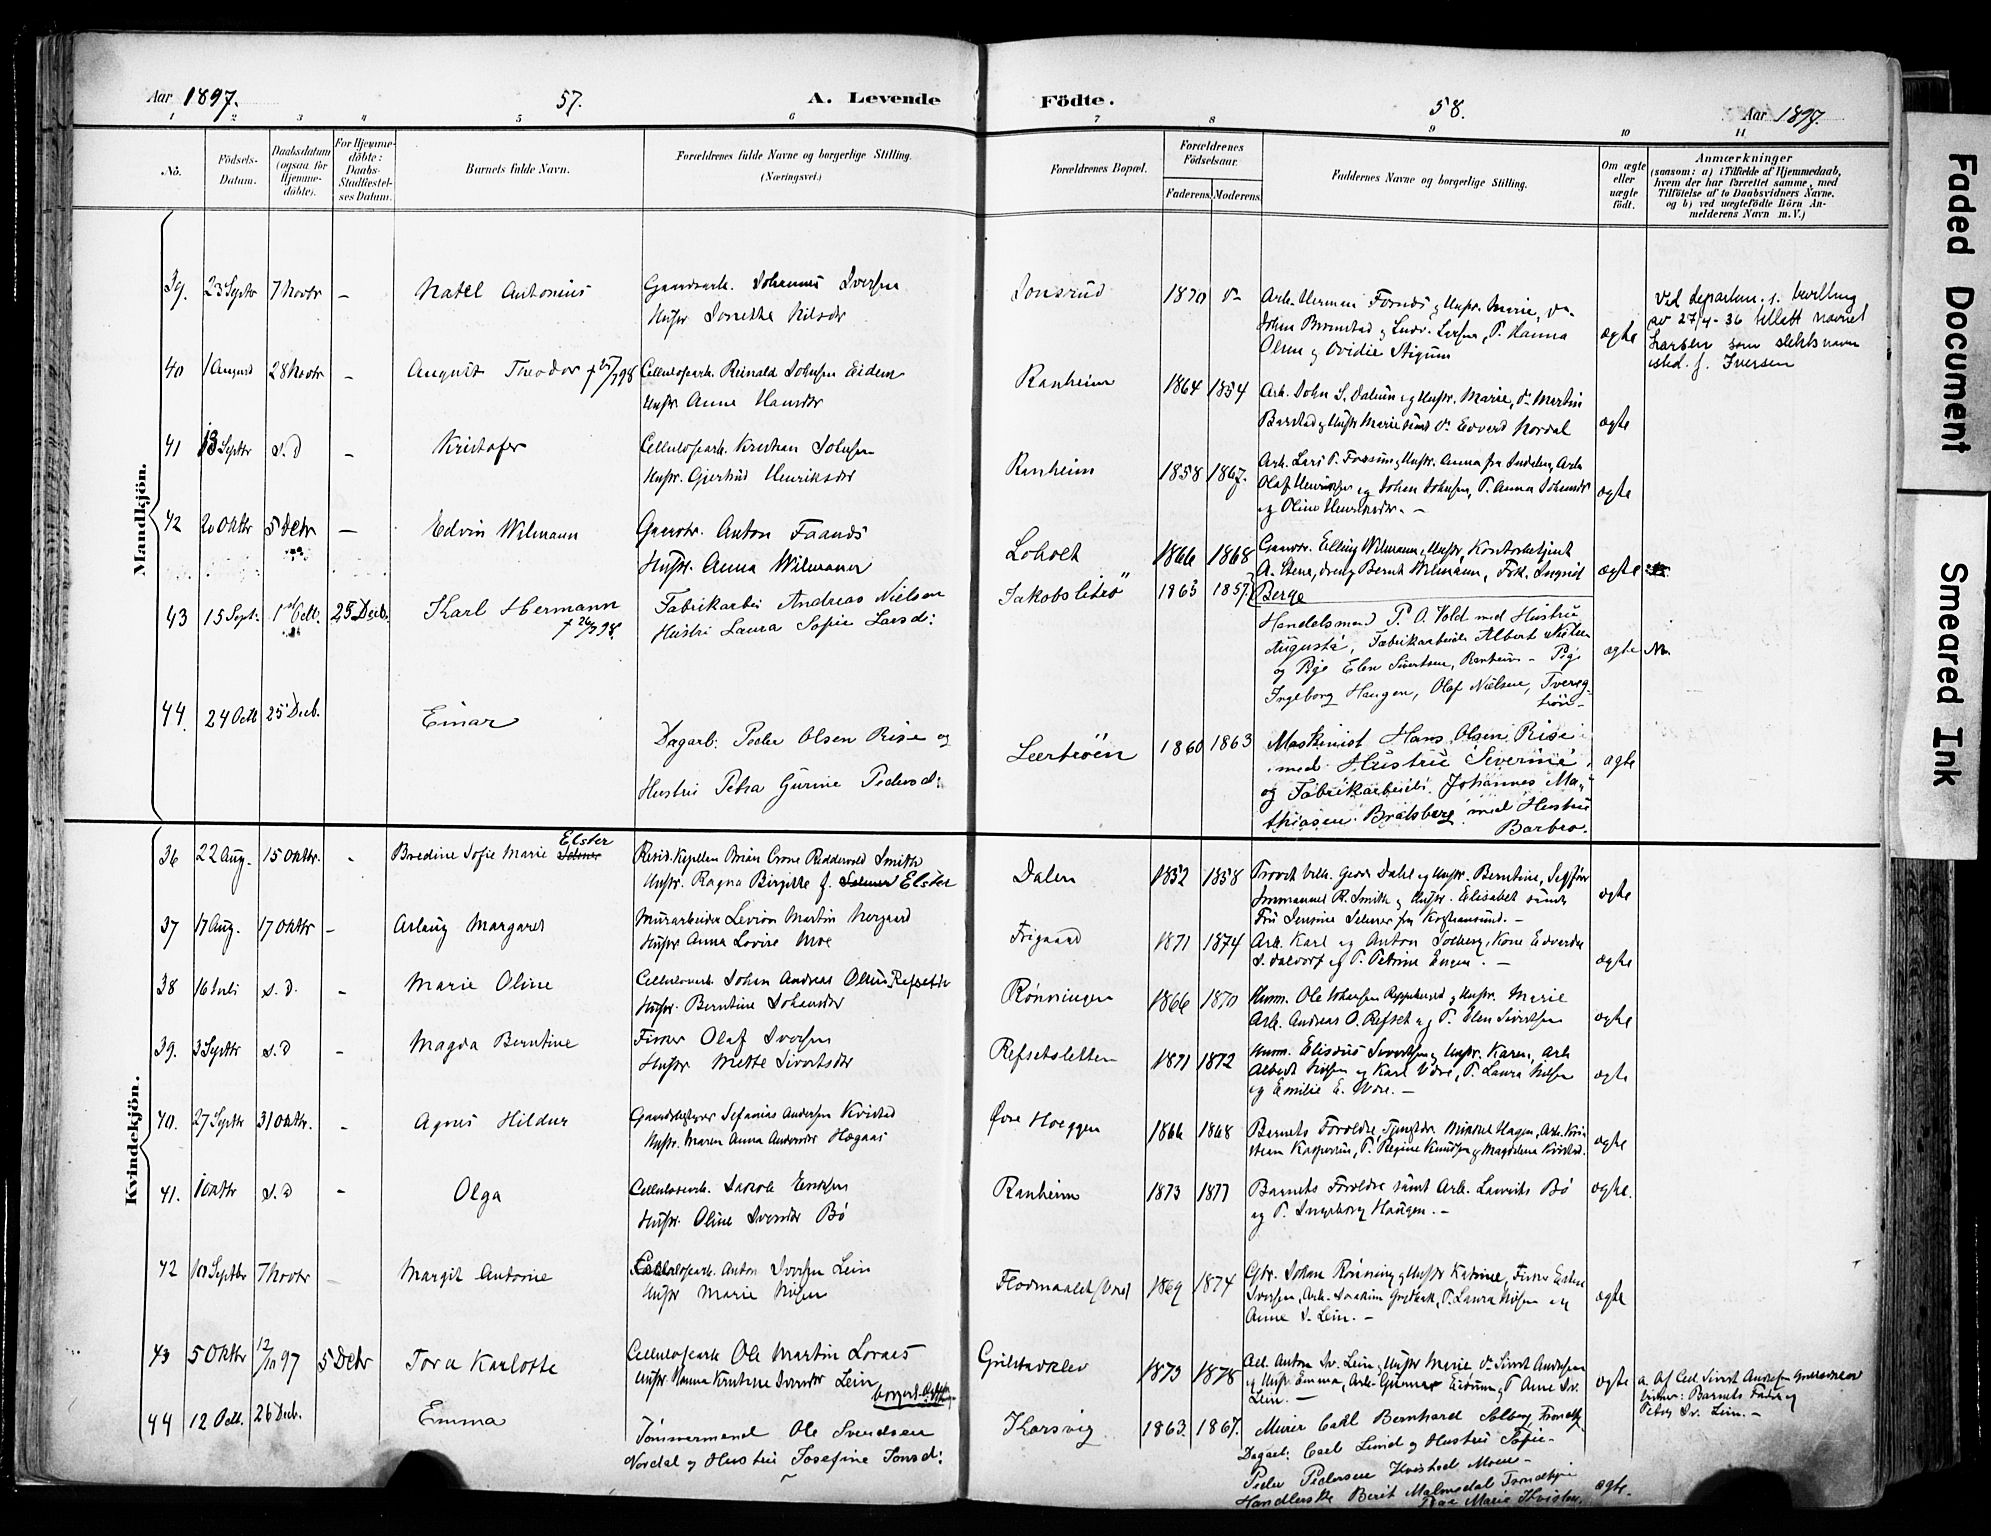 Aar 1897. 57. A. Levende Födte. 58. Aar 1897.
1 2 3 4 5 6 7 8 9 10 11
No. Födsels-Datum. Daabsdatum (ogsaa for Hjemmedöbte). For Hjemmedöbte: Daabs-Stadfæstelses Datum. Barnets fulde Navn. Forældrenes fulde Navne og borgerlige Stilling. (Næringsvei.) Forældrenes Bopæl. Forældrenes Födselsaar. Faderens. Moderens. Faddernes Navne og borgerlige Stilling. Om ægte eller uægte födt. Anmærkninger (saasom: a) i Tilfælde af Hjemmedaab, hvem der har forrettet samme, med Tilföielse af to Daabsvidners Navne. og b) ved uægtefödte Börn Anmelderens Navn m. V.)
Mandkjön.
39. 23 Septbr 7 Novbr - Natel Antonius Gaardarb. Johannes Iversen
Hustr Jonetta Nilsdr
Jonsrud 1870 Arb. Herman Fornes og Hustr. Marie,
Johan Bromstad og Ludv. Larsen, P. Hanna
Olsen og Ovidie Stigum
ægte
Ved departem.s. bevilling
av 27/4-36 tillatt navnet
Larsen som slektsnavn
isted. f. Iversen
40 1 August 28 Novbr - August Teodor Cellulosearb. Reinald Johnsen Eidem
Hustr Anne Hansdr
Ranheim 1864 1854 Arb. John S. Dalum og Hustr. Marie, Martin
Barstad og Hustr Marie samt Edvard Nordal
ægte
41 13 Septbr s. D - Kristofer Cellulosearb. Kristian Johnsen
Hustr. Gjertrud Henriksdr
Ranheim 1858 1867. Arb. Lars P. Fossum og Hustr. Anna fra Inderøen, Arb
Olaf Henriksen og Johan Johnsen, P. Anna Johansdr
og Oline Henriksdr. -
ægte
42 20 Oktbr 5 Decbr - Edvin Wilmann Gaardbr. Anton Foanes
Hustr. Anna Wilmann
Loholt 1866 1868 Gaardbr. Elling Wilmann, Hustr, Kontorbetjent
A. Stene, dreng Bernt Wilmann, Frk. Ingrid
Berge
ægte
43 15 Sept. 25 Decb. Karl Hermann Fabrikarbei Andreas Nielsen
Hustri Laura Sofie Larsd:
Jakobslitrø 1863 1857. Handelsmand P. O. Vold med Hustru
Augusta, Fabrikarbeider Albert Nielsen
og Pige Elen Sivertsen, Ranheim - Pige
Ingeborg Haugen, Olaf Nielsen, Tvereg-
ægte
44. 24 Octb 25 Decb. Einar Dagarb. Peder Olsen Rise og
Hustri Petra Gurine Pedersd:
Leertrøen 1860 1863 Maskinist Hans Olsen Rise
med Hustru Severine
og Fabrikarbeider Johannes Ma-
thiasen Bratsberg med Hustru
Barbro.
ægte
Kvindekjön.
36 22 Aug. 15 Oktbr. - Bredine Sofie Marie Elster Resid. Kapellan Brian Crone Riddervold Smith
Hustr. Ragna Birgitte f. Selmer Elster
Dalen 1852 1858 Provst Dahl og Hustr. Berntine,
Immanuel R. Smith og Hustr. Elisabet samt
Fru Jensine Selmer fra Kristiansund. -
ægte
37 17 Aug. 17 Oktbr - Aslaug Margaret Murarbeider Martin Nergaard
Hustr Anna Lovise Moe
Frigaard 1871 1874 Arb. Karl og Anton Solberg, Kone Edvarda
og P. Petrine Engen. -
ægte
38 16 Juli s. D. - Marie Oline Cellulosearb. Johan Andreas Olsen Refset
Hustr. Berntine Johansdr
Rønningen 1866 1870 Husm. Ole Johansen og Hustr. Marie
Arb. Andreas O. Refset og P. Elen Sivertsen
ægte
39. 3 Septbr s. D - Magda Berntine Firer Olaf Iversen
Hustr Mette Sivertsdr
Refsetsletten 1871 1872 Husm. Elisæus Sivertsen og Hustr. Karen, Arb
Albert Nilsen og Karl Vore, P. Laura Nilsen
og Emilie E. Vore. -
ægte
40. 27 Septbr 31 Oktbr. - Agnes Hildur Gaardbestyrer Sefanias Andersen Kvistad
Hustr. Maren Anna Andersdr Hægaas
Øvre Hoeggen 1866 1868 Barnets Forældre, Mikkel Hagen, Arb. Kri-
stian Kaspersen, P. Regine Knudsen og Magdalena Kvistad.
ægte
41. 1 Oktbr s. D - Olga Cellulosearb. Jakob Eriksen
Hustr. Oline Ivarsdr Bø
Ranheim 1873 1877 Barnets Forældre samt Arb. Laurits Bø
og P. Ingeborg Haugen. -
ægte.
42 10 Septbr 7 Novbr - Margit Antonie Cellulosearb. Anton Iversen Lein
Hustr Marie Nilsen
Flodmaalet/Vored 1869 1874 Gbr. Johan Rønning og Hustr Katrine, Firer Esten
Iversen, Arb. Joakim Grytbak, P. Laura Nilsen og
Anne I. Lein. -
ægte
43 5 Oktbr 12/10 97 5 Decbr Tora Karlotte Cellulosearb Ole Martin Loraas
Hustr Hanna Kristine Ivarsdr Lein
Grilstadklev 1873 1878 Cell. Anton Iv. Lein, Hustr Marie Sivert Andersen
og Hustr Emma, Arb. Gunnar Eidum, P. Anne Iv.
Lein. -
ægte a. Af Cell. Sivert Andersen Grilstadklev
Vidner: Barnets Fader og
Peter Iv. Lein. -
44 12 Octb. 26 Decb. Emma Tømmermand Ole Svendsen
Nordal og Hustru Josefine Jonsd:
Karsvig 1863. 1867. Murer Carl Bernhard Solberg, Trondhj.
Dagarb: Carl Lund og Hustru Sofie -
Peder Pedersen Kvistad Moen -
Handlerske Berit Malmsdal Trondhjem
Marie Kvisten.
ægte.
Faded Document
Smeared Ink